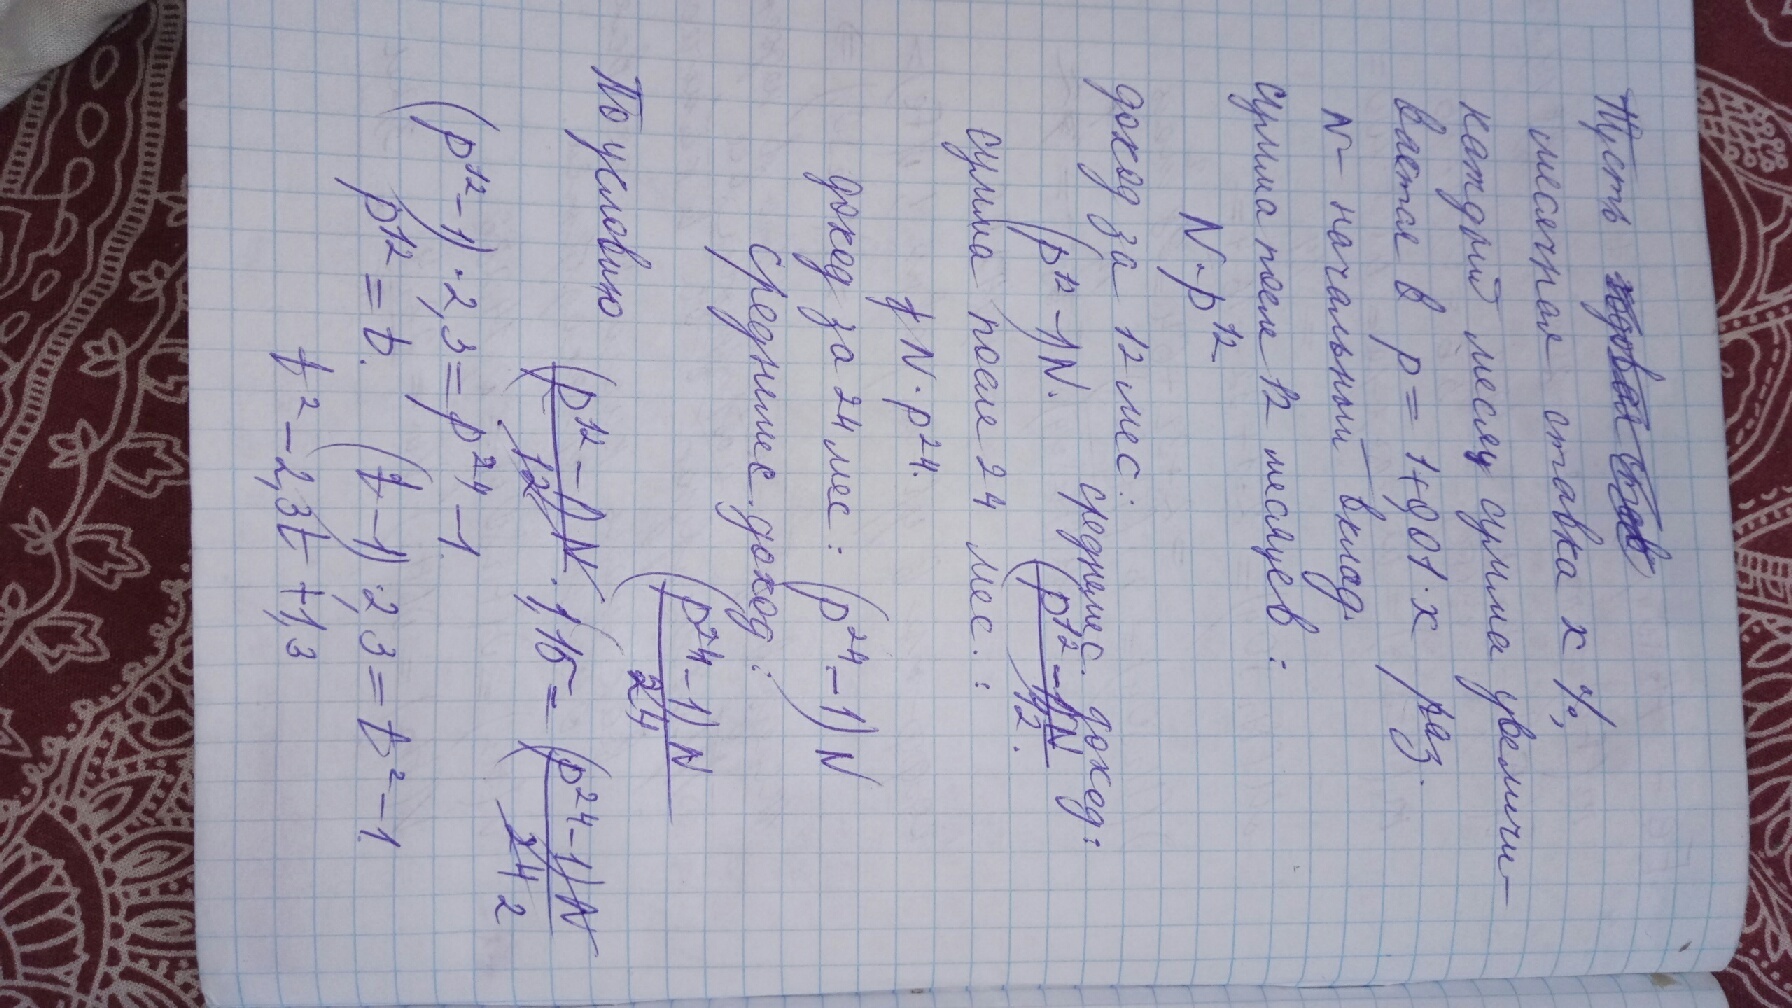 Пусть годовая став
месячная ставка x %,
каждый месяц сумма увеличи-
вается в p = 1+0,01·x раз.
N - начальный вклад.
сумма посл 12 месяцев:
N·p¹²
доход за 12 мес: среднемес. доход:
(p¹²-1)N. (p¹²-1)N / 12.
сумма после 24 мес.:
N·p²⁴.
доход за 24 мес: (p²⁴-1)N
среднемес. доход: (p²⁴-1)N / 24
По условию (p¹²-1)N / 12 · 1,15 = (p²⁴-1)N / 24 2
(p¹²-1)·2,3 = p²⁴-1.
p¹² = t. (t-1)·2,3 = t²-1.
t²-2,3t+1,3